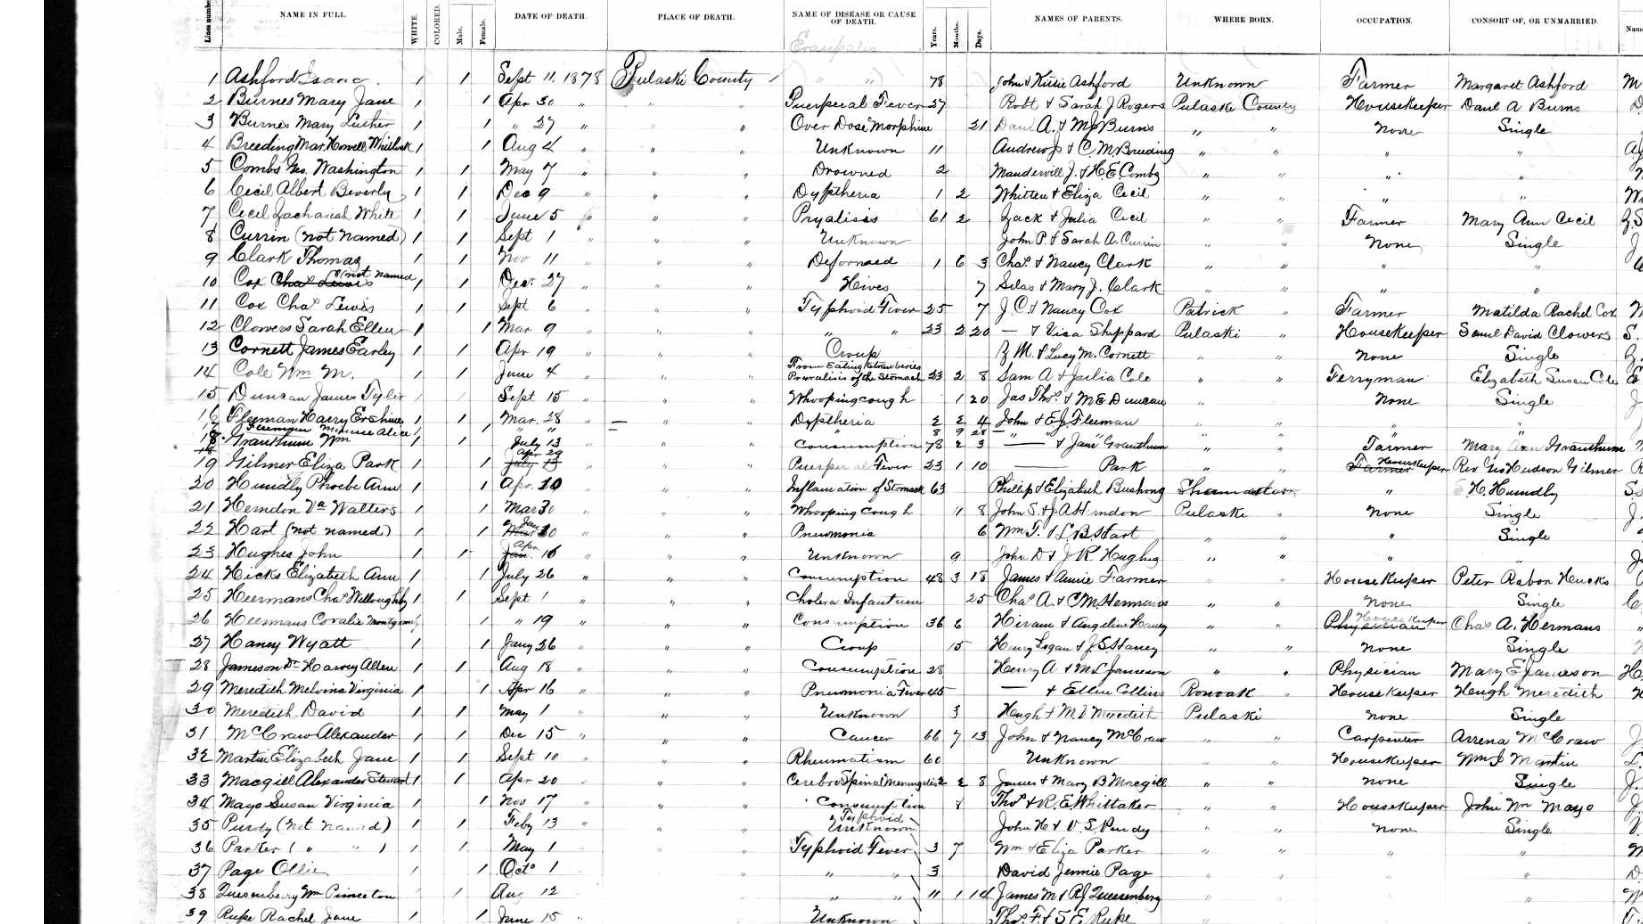 Lines number NAME IN FULL. WHITE. COLORED. Male. Female. DATE OF DEATH. PLACE OF DEATH. NAME OF DISEASE OR CAUSE OF DEATH. Years. Months. Days. NAMES OF PARENTS. WHERE BORN. OCCUPATION. CONSORT OF, OR UNMARRIED.
1 Ashford Isaac 1 1 Sept 11, 1878 Pulaski County " " 78 John & Ashford Unknown Farmer Margaret Ashford
2 Burnes Mary Jane 1 1 Apr 30 " " " Puerperal Fever 27 Robt & Sarah J Rogers Pulaski County Housekeeper Danl A Burns
3 Burnes Mary Luther 1 1 " 27 " " " Over Dose Morphine 21 Danl A. & M J Burns " " None Single
4 Breeding Mar Howell 1 1 Aug 4 " " " Unknown 11 Andrew J & C. M Breeding " " " "
5 Combs Washington 1 1 May 7 " " " Drowned 2 J. & H E Combs " " " "
6 Cecil Albert Beverly 1 1 Dec 9 " " " Dyptheria 1 2 Whitten & Eliza Cecil " " " "
7 Cecil Zachariah White 1 1 June 5 " " " Pryalisis 61 2 Zack & Julia Cecil " " Farmer Mary Ann Cecil
8 Currin (not named) 1 1 Sept 1 " " " Unknown John P. & Sarah A. Currin " " None Single
9 Clark Thomas 1 1 Nov 11 " " " Deformed 1 6 3 Chas. & Nancy Clark " " " "
10 Cox Chas Lewis (not named 1 1 Dec. 27 " " " Hives 7 Silas & Mary J. Clark " " " "
11 Cox Chas Lewis 1 1 Sept 6 " " " Typhoid Fever 25 7 J. C. & Nancy Cox Patrick " Farmer Matilda Rachel Cox
12 Clowers Sarah Ellen 1 1 Mar 9 " " " " " 23 2 20 — & Visa Sheppard Pulaski " Housekeeper Saml David Clowers
13 Cornett James Earley 1 1 Apr 19 " " " Croup Z M. & Lucy M. Cornett " " None Single
14 Cole Wm M. 1 1 June 4 " " " From Eating Strawberries of the Stomach 23 2 8 Sam A & Julia Cole " " Ferryman Elizabeth Susan Cole
15 Duncan James Tyler 1 1 Sept 15 " " " Whooping cough 1 20 Jas Thos & M E Duncan " " None Single
16 Fleeman Harry Erskine 1 1 Mar. 28 " " " Dyptheria 2 2 4 John & E J Fleeman " " " "
17 Fleeman Minnie Alice 1 1 " " " 8 9 28 " " " "
18 Grantham Wm 1 1 July 13 " " " Consumption 78 2 3 — & Jane Grantham " " Farmer Mary Ann Grantham
19 Gilmer Eliza Park 1 1 Apr 29 July 13 " " " Puerperal Fever 23 1 10 — Park " " Farmer Housekeeper Rev Geo Hudson Gilmer
20 Hundly Phoebe Ann 1 1 Apr. 10 " " " Inflamation of Stomach 63 Philip & Elizabeth Bushong " H. Hundly
21 Herndon Va Walters 1 1 Mar 30 " " " Whooping Cough 11 8 John S. & J A Herndon Pulaski " None Single
22 Hart (not named) 1 1 Jan 30 " " " Pneumonia 6 Wm T. & L. B Hart " " " Single
23 Hughes John 1 1 Apr Jan. 16 " " " Unknown 9 John D & J R Hughes " " " "
24 Hicks Elizabeth Ann 1 1 July 26 " " " Consumption 48 3 18 James & Annie Farmer " " Housekeeper Peter Rabon
25 Heermans Chas Willoughby 1 1 Sept 1 " " " Cholera Infantum 25 Chas A. & C M " " None Single
26 Heermans Coralie 1 1 " 19 " " " Consumption 36 6 Hiram & Angeline Haney " " Physician Housekeeper Chas A. Hermans
27 Haney Wyatt 1 1 Jany 26 " " " Croup 15 Henry Logan & J. S. Haney " " None Single
28 Jameson Dr Harvey Allen 1 1 Aug 18 " " " Consumption 28 Henry A & M L Jameson " " Physician Mary E Jameson
29 Meredith Melvina Virginia 1 1 Apr 16 " " " Pneumonia Fever 45 — & Ellen Collins Ronoak " Housekeeper Hugh Meredith
30 Meredith David 1 1 May 1 " " " Unknown 3 Hugh & M V Meredith Pulaski " None Single
31 McCraw Alexander 1 1 Dec 15 " " " Cancer 66 7 13 John & Nancy McCraw " " Carpenter Arrena McCraw
32 Martin Elizabeth Jane 1 1 Sept 10 " " " Rheumatism 60 Unknown " " Housekeeper Wm Martin
33 Macgill Alexander Stewart 1 1 Apr 20 " " " Cerebro Spinal 2 2 8 James & Mary B Macgill " " None Single
34 Mayo Susan Virginia 1 1 Nov 17 " " " Consumption Thos & R. E. Whittaker " " Housekeeper John Wm Mayo
35 Purdy (not named) 1 1 Feby 13 " " " Typhoid Unknown John H & V S. Purdy " " None Single
36 Parker ( " " ) 1 1 May 1 " " " Typhoid Fever 3 7 Wm & Eliza Parker " " " "
37 Page Ollie 1 1 Oct 1 " " " " " 3 David Jennie Page " " " "
38 Quesenbery Wm Princeton 1 1 Aug 12 " " " " " 11 1 14 James M & R J Quesenberg " " " "
39 Rupe Rachel Jane 1 1 June 15 " " " Unknown Thos F. & S E Rupe " " " "